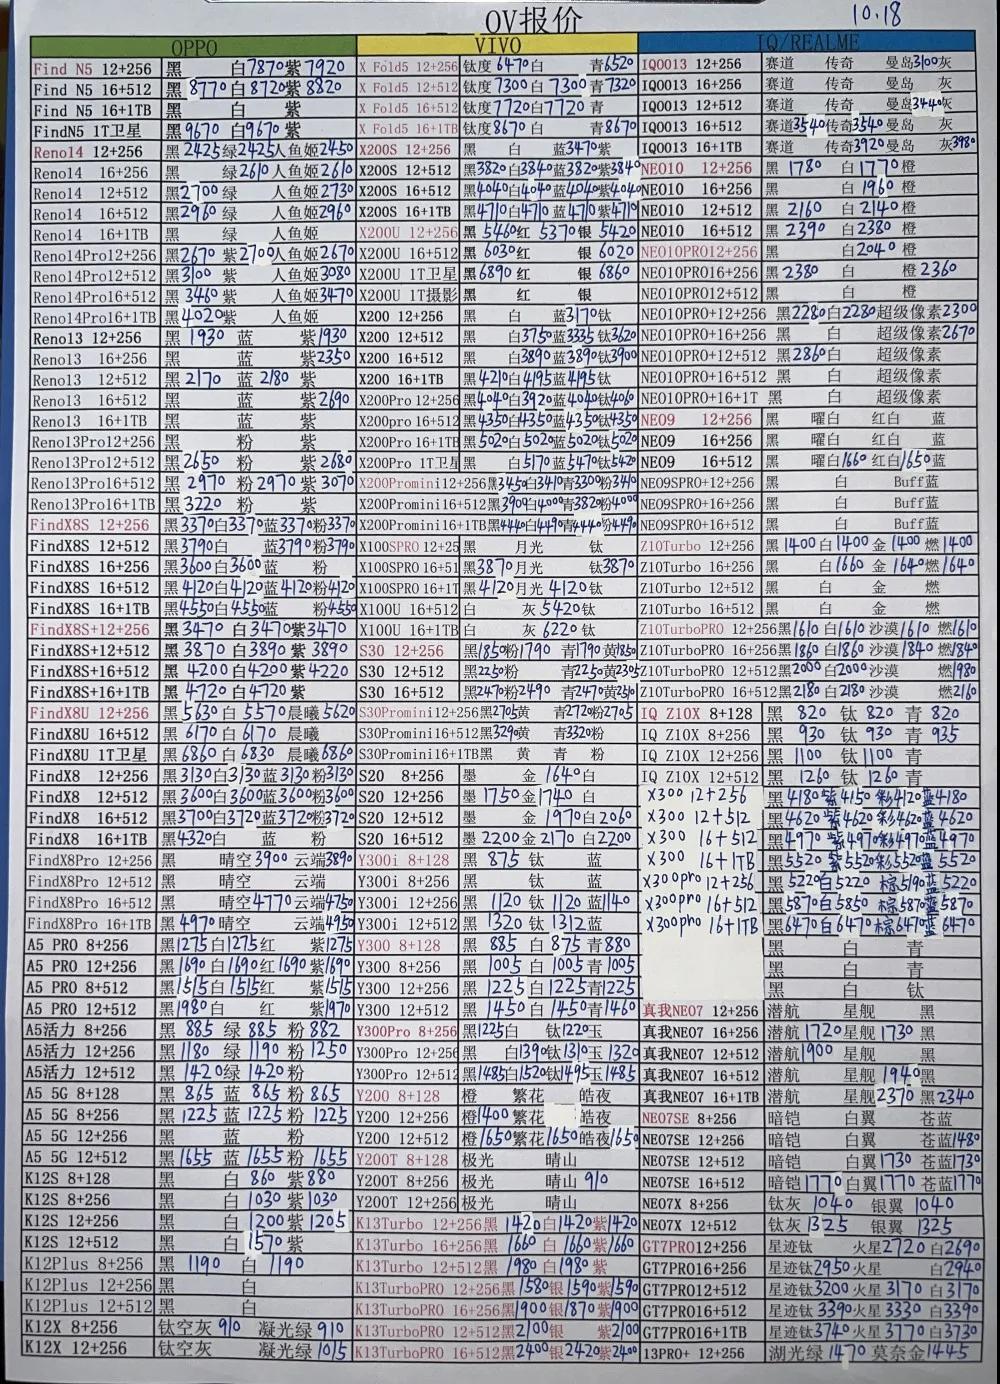 OV报价 10.18
OPPO VIVO IQ/REALME
Find N5 12+256 黑 白7870紫7920 X Fold5 12+256 钛度6470白 青6520 IQ0013 12+256 赛道 传奇 曼岛3100灰
Find N5 16+512 黑8770白8720紫8820 X Fold5 16+512 钛度7300白7300青7320 IQ0013 16+256 赛道 传奇 曼岛 灰
Find N5 16+1TB 黑 白 紫 X Fold5 16+512 钛度7720白7720青 IQ0013 12+512 赛道 传奇 曼岛3440灰
FindN5 1T卫星 黑9670白9670紫 X Fold5 16+1TB 钛度8670白 青8670 IQ0013 16+512 赛道3540传奇3540曼岛 灰
Reno14 12+256 黑2425绿2425人鱼姬2450 X200S 12+256 黑 白 蓝3470紫 IQ0013 16+1TB 赛道 传奇3920曼岛 灰3980
Reno14 16+256 黑 绿2610人鱼姬2610 X200S 12+512 黑3820白3840蓝3820紫3840 NEO10 12+256 黑1780 白1770橙
Reno14 12+512 黑2700绿 人鱼姬2730 X200S 16+512 黑4040白4040蓝4040紫4040 NEO10 16+256 黑 白1960橙
Reno14 16+512 黑2960绿 人鱼姬2960 X200S 16+1TB 黑4710白4710蓝4710紫4710 NEO10 12+512 黑2160 白2140橙
Reno14 16+1TB 黑 绿 人鱼姬 X200U 12+256 黑5460红5370银5420 NEO10 16+512 黑2390 白2380橙
Reno14Pro12+256 黑2670紫2700人鱼姬2670 X200U 16+512 黑6030红 银6020 NEO10PRO12+256 黑 白2040橙
Reno14Pro12+512 黑3100紫 人鱼姬3080 X200U 1T卫星 黑6890红 银6860 NEO10PRO16+256 黑2380 白 橙2360
Reno14Pro16+512 黑3460紫 人鱼姬3470 X200U 1T摄影 黑 红 银 NEO10PRO12+512 黑 白 橙
Reno14Pro16+1TB 黑4020紫 人鱼姬 X200 12+256 黑 白 蓝3170钛 NEO10PRO+12+256 黑2280白2280超级像素2300
Reno13 12+256 黑1930蓝 紫1930 X200 12+512 黑 白3750蓝3335钛3620 NEO10PRO+16+256 黑 白 超级像素2670
Reno13 16+256 黑 蓝 紫2350 X200 16+512 黑 白3890蓝3890钛3900 NEO10PRO+12+512 黑2860白 超级像素
Reno13 12+512 黑2170蓝2180紫 X200 16+1TB 黑4210白4195蓝4195钛 NEO10PRO+16+512 黑 白 超级像素
Reno13 16+512 黑 蓝 紫2690 X200Pro 12+256 黑4040白3920蓝4040钛4060 NEO10PRO+16+1T 黑 白 超级像素
Reno13 16+1TB 黑 蓝 紫 X200pro 16+512 黑4350白4350蓝4350钛4350 NEO9 12+256 黑 曜白 红白 蓝
Reno13Pro12+256 黑 粉 紫 X200Pro 16+1TB 黑5020白5020蓝5020钛5020 NEO9 16+256 黑 曜白 红白 蓝
Reno13Pro12+512 黑2650粉 紫2680 X200Pro 1T卫星 黑 白5170蓝5470钛5420 NEO9 16+512 黑 曜白1660红白1650蓝
Reno13Pro16+512 黑2970粉2970紫3070 X200Promini12+256 黑3450白3410青3300粉3410 NEO9SPRO+12+256 黑 白 Buff蓝
Reno13Pro16+1TB 黑3220粉 紫 X200Promini16+512 黑3900白4000青3820粉4000 NEO9SPRO+16+512 黑 白 Buff蓝
FindX8S 12+256 黑3370白3370蓝3370粉3370 X200Promini16+1TB 黑4440白4490青4440粉4490 NEO9SPRO+16+512 黑 白 Buff蓝
FindX8S 12+512 黑3790白 蓝3790粉3790 X100SPRO 12+25 黑 月光 钛 Z10Turbo 12+256 黑1400白1400金1400燃1400
FindX8S 16+256 黑3600白3600蓝 粉 X100SPRO 16+51 黑3870月光 钛3870 Z10Turbo 16+256 黑 白1660金1640燃1640
FindX8S 16+512 黑4120白4120蓝4120粉4120 X100SPRO 16+1T 黑4120月光4120钛 Z10Turbo 12+512 黑 白 金 燃
FindX8S 16+1TB 黑4550白4550蓝 粉4550 X100U 16+512 白 灰5420钛 Z10Turbo 16+512 黑 白 金 燃
FindX8S+12+256 黑3470白3470紫3470 X100U 16+1TB 白 灰6220钛 Z10TurboPRO 12+256 黑1610白1610沙漠1610燃1610
FindX8S+12+512 黑3870白3890紫3890 S30 12+256 黑1850粉1790青1790黄1850 Z10TurboPRO 16+256 黑1860白1860沙漠1840燃1840
FindX8S+16+512 黑4200白4200紫4220 S30 12+512 黑2250粉 青2250黄2305 Z10TurboPRO 12+512 黑2000白2000沙漠 燃1980
FindX8S+16+1TB 黑4720白4720紫 S30 16+512 黑2470粉2490青2470黄2510 Z10TurboPRO 16+512 黑2180白2180沙漠 燃2160
FindX8U 12+256 黑5630白5570晨曦5620 S30Promini12+256 黑2705黄 青2720粉2705 IQ Z10X 8+128 黑820钛820青820
FindX8U 16+512 黑6170白6170晨曦 S30Promini16+512 黑3290黄 青3320粉 IQ Z10X 8+256 黑930钛930青935
FindX8U 1T卫星 黑6860白6830晨曦6860 S30Promini16+1TB 黑 黄 青 粉 IQ Z10X 12+256 黑1100钛1100青
FindX8 12+256 黑3130白3130蓝3130粉3130 S20 8+256 墨 金1640白 IQ Z10X 12+512 黑1260钛1260青
FindX8 12+512 黑3600白3600蓝3600粉3600 S20 12+256 墨1750金1740白 X300 12+256 黑4180紫4150彩4120蓝4180
FindX8 16+512 黑3700白3720蓝3720粉3720 S20 12+512 墨 金1970白2060 X300 12+512 黑4620紫4620彩4620蓝4620
FindX8 16+1TB 黑4320白 蓝 粉 S20 16+512 墨2200金2170白2200 X300 16+512 黑4970紫4970彩4970蓝4970
FindX8Pro 12+256 黑 晴空3900云端3890 Y300i 8+128 黑875钛 蓝 X300 16+1TB 黑5520紫5520彩5520蓝5520
FindX8Pro 12+512 黑 晴空 云端 Y300i 8+256 黑 钛 蓝 X300pro 12+256 黑5220白5220棕5190蓝5220
FindX8Pro 16+512 黑 晴空4770云端4750 Y300i 12+256 黑1120钛1120蓝1140 X300pro 16+512 黑5870白5850棕5870蓝5870
FindX8Pro 16+1TB 黑4970晴空 云端4950 Y300i 12+512 黑1320钛1312蓝 X300pro 16+1TB 黑6470白6470棕6470蓝6470
A5 PRO 8+256 黑1275白1275红 紫1275 Y300 8+128 黑885白875青880 黑 白 青
A5 PRO 12+256 黑1690白1690红1690紫1690 Y300 8+256 黑1005白1005青1005 黑 白 青
A5 PRO 8+512 黑1515白1515红 紫1515 Y300 12+256 黑1225白1225青1225 黑 白 钛
A5 PRO 12+512 黑1980白 红 紫1970 Y300 12+512 黑1450白1450青1460 真我NEO7 12+256 潜航 星舰 黑
A5活力 8+256 黑885绿885粉882 Y300Pro 8+256 黑1225白 钛1220玉 真我NEO7 16+256 潜航1720星舰1730黑
A5活力 12+256 黑1180绿1190粉1250 Y300Pro 12+256 黑 白1390钛1310玉1320 真我NEO7 12+512 潜航1900星舰 黑
A5活力 12+512 黑1420绿1420粉 Y300Pro 12+512 黑1485白1520钛1495玉1485 真我NEO7 16+512 潜航 星舰1940黑
A5 5G 8+128 黑865蓝865粉865 Y200 8+128 橙 繁花 皓夜 真我NEO7 16+1TB 潜航 星舰2370黑2340
A5 5G 8+256 黑1225蓝1225粉1225 Y200 12+256 橙1400繁花 皓夜 NEO7SE 8+256 暗铠 白翼 苍蓝
A5 5G 12+256 黑 蓝 粉 Y200 12+512 橙1650繁花1650皓夜1650 NEO7SE 12+256 暗铠 白翼 苍蓝1480
A5 5G 12+512 黑1655蓝1655粉1655 Y200T 8+128 极光 晴山 NEO7SE 12+512 暗铠 白翼1730苍蓝1730
K12S 8+128 黑 白860紫880 Y200T 8+256 极光 晴山910 NEO7SE 16+512 暗铠1770白翼1770苍蓝1770
K12S 8+256 黑 白1030紫1030 Y200T 12+256 极光 晴山 NEO7X 8+256 钛灰1040银翼1040
K12S 12+256 黑 白1200紫1205 K13Turbo 12+256 黑1420白1420紫1420 NEO7X 12+512 钛灰1325银翼1325
K12S 12+512 黑 白1570紫 K13Turbo 16+256 黑1660白1660紫1660 GT7PRO12+256 星迹钛 火星2720白2690
K12Plus 8+256 黑1190白1190 K13Turbo 12+512 黑1980白1980紫 GT7PRO16+256 星迹钛2950火星 白2940
K12Plus 12+256 黑 白 K13TurboPRO 12+256 黑1580银1590紫1590 GT7PRO12+512 星迹钛3200火星3170白3170
K12Plus 12+512 黑 白 K13TurboPRO 16+256 黑1900银1870紫1900 GT7PRO16+512 星迹钛3390火星3330白3390
K12X 8+256 钛空灰910凝光绿910 K13TurboPRO 12+512 黑2100银 紫2100 GT7PRO16+1TB 星迹钛3740火星3770白3730
K12X 12+256 钛空灰 凝光绿1015 K13TurboPRO 16+512 黑2400银2420紫2400 13PRO+ 12+256 湖光绿1470莫奈金1445